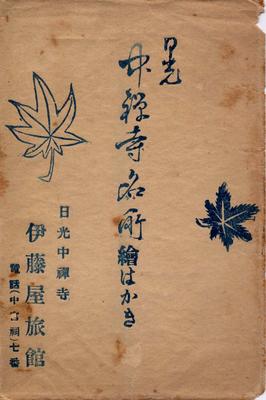 日光
中禅寺名所繪はかき
日光中禪寺
伊藤屋旅館
電話(中宮祠)七番